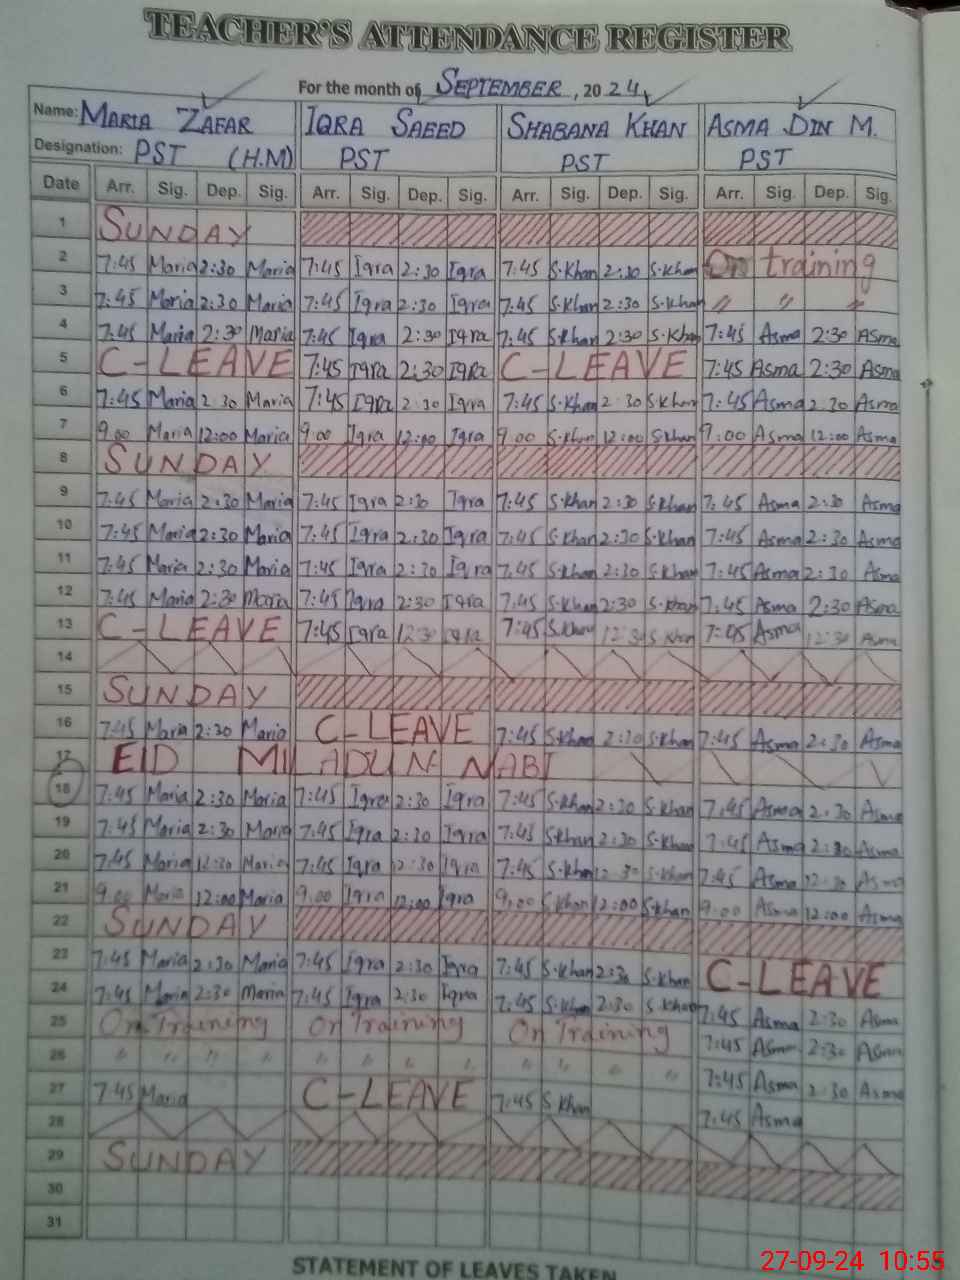 TEACHER'S ATTENDANCE REGISTER
For the month of SEPTEMBER, 2024
Name: MARIA ZAFAR IQRA SAEED SHABANA KHAN ASMA DIN M.
Designation: PST (H.M) PST PST PST
Date Arr. Sig. Dep. Sig. Arr. Sig. Dep. Sig. Arr. Sig. Dep. Sig. Arr. Sig. Dep. Sig.
1 SUNDAY
2 7:45 Maria 2:30 Maria 7:45 Iqra 2:30 Iqra 7:45 S.Khan 2:30 S.Khan On training
3 7:45 Maria 2:30 Maria 7:45 Iqra 2:30 Iqra 7:45 S.Khan 2:30 S.Khan " " "
4 7:45 Maria 2:30 Maria 7:45 Iqra 2:30 Iqra 7:45 S.Khan 2:30 S.Khan 7:45 Asma 2:30 Asma
5 C-LEAVE 7:45 Iqra 2:30 Iqra C-LEAVE 7:45 Asma 2:30 Asma
6 7:45 Maria 2:30 Maria 7:45 Iqra 2:30 Iqra 7:45 S.Khan 2:30 S.Khan 7:45 Asma 2:30 Asma
7 9:00 Maria 12:00 Maria 9:00 Iqra 12:00 Iqra 9:00 S.Khan 12:00 S.Khan 9:00 Asma 12:00 Asma
8 SUNDAY
9 7:45 Maria 2:30 Maria 7:45 Iqra 2:30 Iqra 7:45 S.Khan 2:30 S.Khan 7:45 Asma 2:30 Asma
10 7:45 Maria 2:30 Maria 7:45 Iqra 2:30 Iqra 7:45 S.Khan 2:30 S.Khan 7:45 Asma 2:30 Asma
11 7:45 Maria 2:30 Maria 7:45 Iqra 2:30 Iqra 7:45 S.Khan 2:30 S.Khan 7:45 Asma 2:30 Asma
12 7:45 Maria 2:30 Maria 7:45 Iqra 2:30 Iqra 7:45 S.Khan 2:30 S.Khan 7:45 Asma 2:30 Asma
13 C-LEAVE 7:45 Iqra 12:30 Iqra 7:45 S.Khan 12:30 S.Khan 7:45 Asma 12:30 Asma
14
15 SUNDAY
16 7:45 Maria 2:30 Maria C-LEAVE 7:45 S.Khan 2:30 S.Khan 7:45 Asma 2:30 Asma
17 EID MILADUN NABI
18 7:45 Maria 2:30 Maria 7:45 Iqra 2:30 Iqra 7:45 S.Khan 2:30 S.Khan 7:45 Asma 2:30 Asma
19 7:45 Maria 2:30 Maria 7:45 Iqra 2:30 Iqra 7:45 S.Khan 2:30 S.Khan 7:45 Asma 2:30 Asma
20 7:45 Maria 12:30 Maria 7:45 Iqra 12:30 Iqra 7:45 S.Khan 12:30 S.Khan 7:45 Asma 12:30 Asma
21 9:00 Maria 12:00 Maria 9:00 Iqra 12:00 Iqra 9:00 S.Khan 12:00 S.Khan 9:00 Asma 12:00 Asma
22 SUNDAY
23 7:45 Maria 2:30 Maria 7:45 Iqra 2:30 Iqra 7:45 S.Khan 2:30 S.Khan C-LEAVE
24 7:45 Maria 2:30 Maria 7:45 Iqra 2:30 Iqra 7:45 S.Khan 2:30 S.Khan 7:45 Asma 2:30 Asma
25 On Training On Training On Training 7:45 Asma 2:30 Asma
26 " " " " " " " " " " " " 7:45 Asma 2:30 Asma
27 7:45 Maria C-LEAVE 7:45 S.Khan 7:45 Asma
28
29 SUNDAY
30
31
STATEMENT OF LEAVES TAKEN
27-09-24 10:55